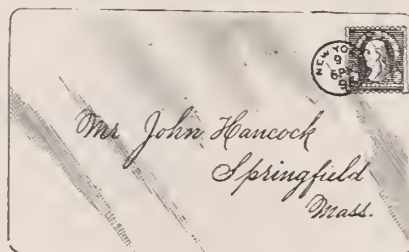 NEW YO
9
6PM
9
Mr John Hancock
Springfield
Mass.